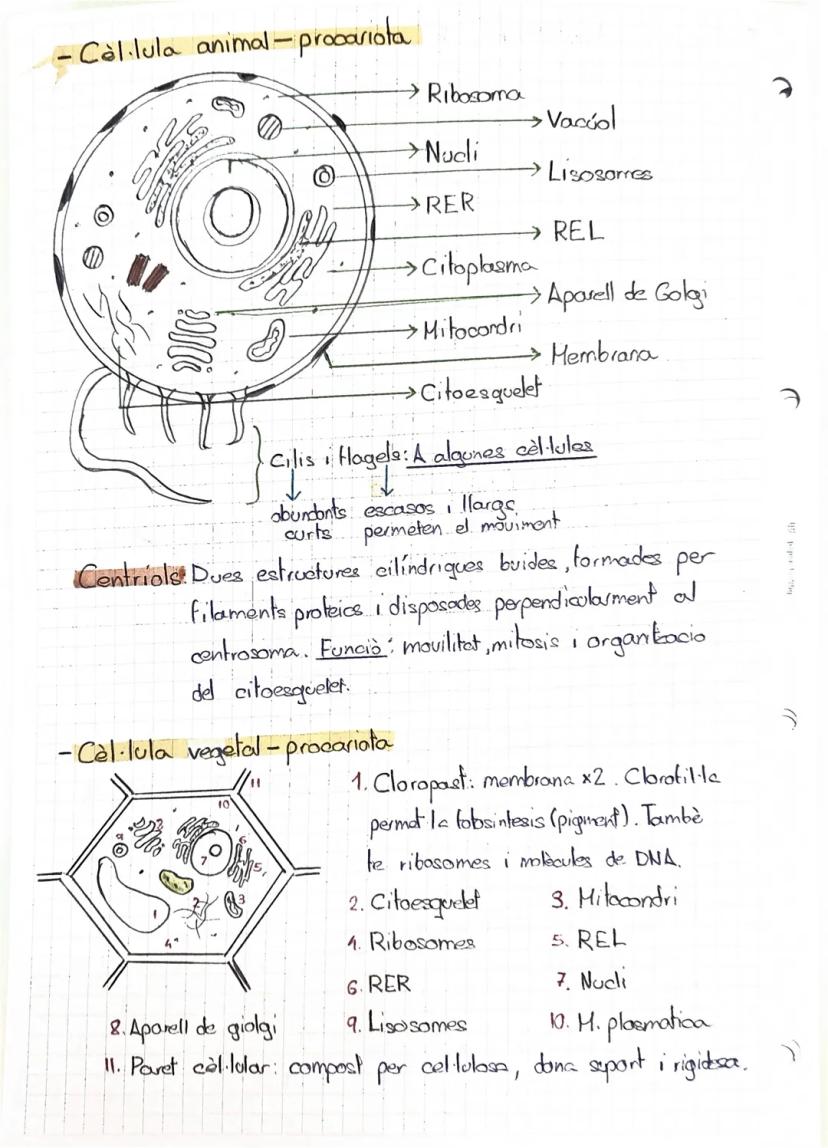 - Cèl·lula animal - procariota
Ribosoma
Vacúol
Nucli
Lisosomes
RER
REL
Citoplasma
Aparell de Golgi
Mitocondri
Membrana
Citoesquelet
Cilis i flagels: A algunes cèl·lules
abundants escasos i llargs
curts permeten el moviment
Centriols: Dues estructures cilíndriques buides, formades per
filaments proteics i disposades perpendicularment al
centrosoma. Funciò: movilitat, mitosis i organització
del citoesquelet.
- Cèl·lula vegetal - procariota
1. Cloropast: membrana x2. Clorofil·la
permet la fotosintesis (pigment). Tambè
te ribosomes i molècules de DNA.
2. Citoesquelet 3. Mitocondri
4. Ribosomes 5. REL
6. RER 7. Nucli
8. Aparell de giolgi 9. Lisosomes 10. M. plasmatica
11. Paret cèl·lular: compost per cel·lulosa, dona suport i rigidesa.
11
10
9
8
6
7
5
3
2
1
4